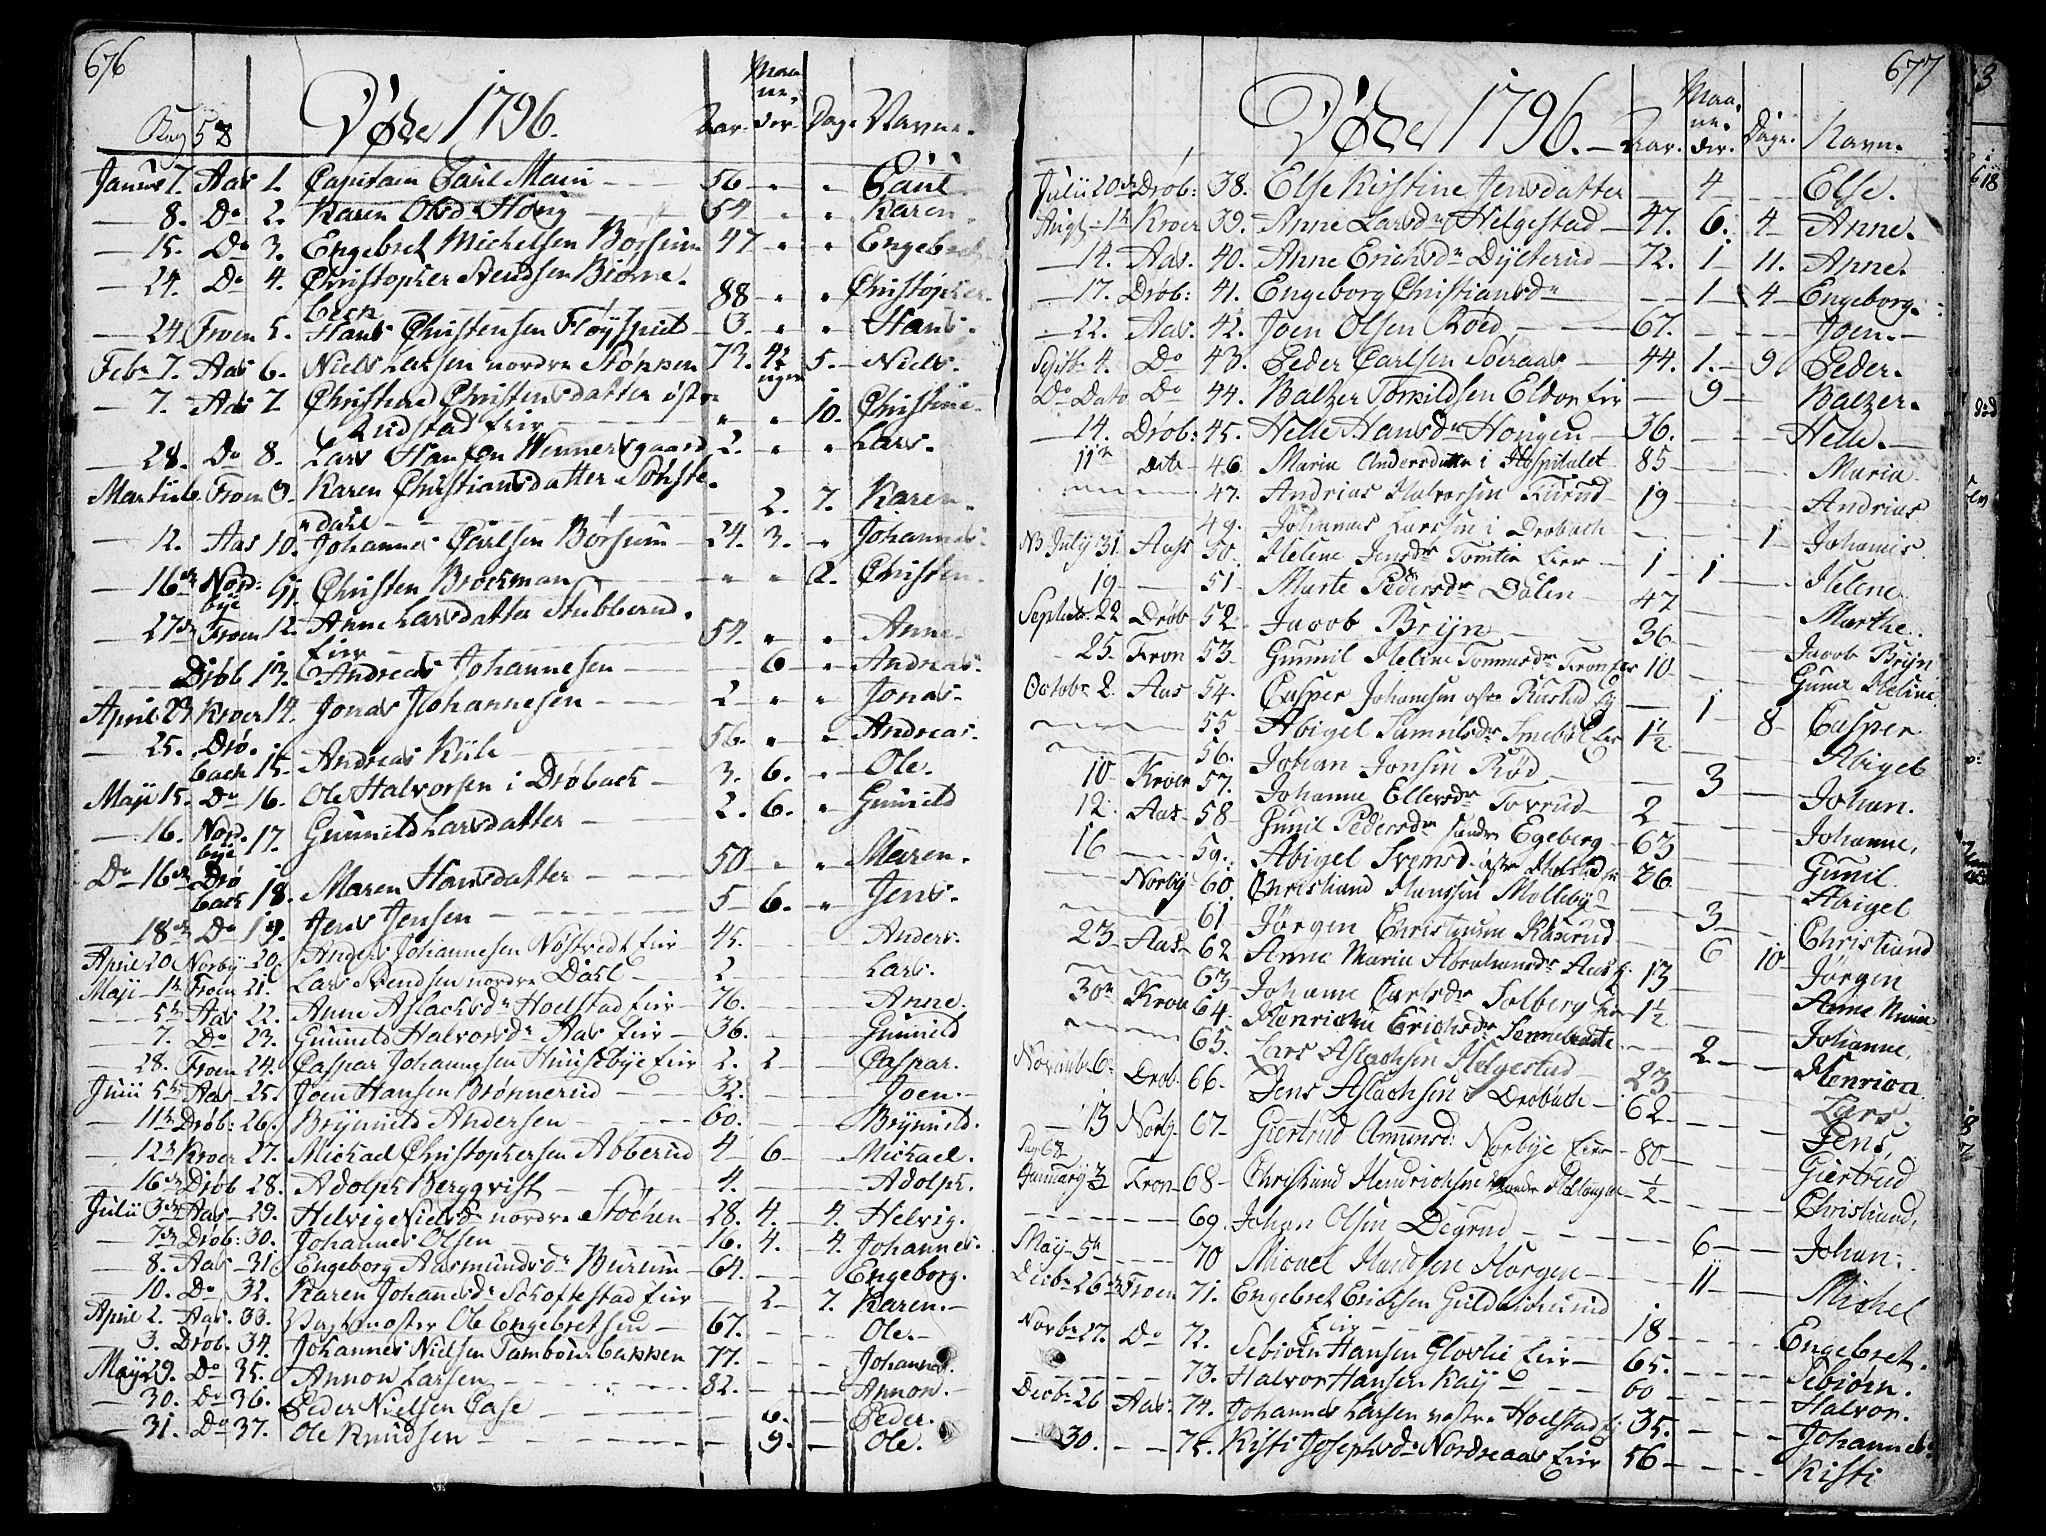 676
Pag 58
Døde 1796.
Aar. Maaneder. Dage Navne.
Januar 7. Aas 1. Capitain Paul Main 56 Paul
8. Do 2. Karen Olsdr Houg 54 Karen.
15. Do 3. Engebret Michelsen Børsum 47 Engebret
24. Do 4. Christopher Svendsen Biørne-
beck 88 Christopher.
24 Froen 5. Hans Christensen Fløyspiet 3. Hans.
Febr 7. Aas 6. Niels Larsen nordre Støkken 73. 42 uger 5. Niels.
7. Aas 7. Christine Christensdatter østre
Rudstad Eier 10. Christine.
28. Do 8. Lars Hansen Wennersgaard 2. Lars.
Martii 6. Froen 9. Karen Christiansdatter Sønste-
dahl 2. 7. Karen.
12. Aas 10. Johannes Carlsen Børsum 24. 3. Johannes.
16de Nord-
bye 11. Christen Brockman 2. Christen.
27de Froen 12. Anne Larsdatter Stubberud.
Eier 54. Anne
Drøb 13. Andreas Johannesen 6 Andreas.
April 23 Kroer 14. Jonas Johannesen 2 Jonas.
25. Drø-
bach 15. Andreas Kiile 56. Andreas.
Maji 15. Do 16. Ole Halvorsen i Drøback 3. 6. Ole.
16. Nord-
bye 17. Gunnild Larsdatter 2. 6. Gunnild
Do 16de Drø
bach 18. Maren Hansdatter 50 Maren.
18de Do 19. Jens Jensen 5 6. Jens.
April 20 Norby 20. Anders Johannesen Nøstvedt Eier 45. Anders.
Maji 1te Froen 21. Lars Svendsen nordre Dahl 2 Lars.
5te Aas 22. Anne Aslachsdr Hoelstad Eier 76. Anne.
7. Do 23. Gunnild Halvorsdr Aas Eier 36. Gunnild
28. Froen 24. Caspar Johannesen Huusebye Eier 2. 2 Caspar.
Junii 5te Aas 25. Joen Hansen Brønnerud 32. Joen.
11te Drøb: 26. Brynnild Andersen 60. Brynnild.
12te Kroer 27. Michael Christophersen Abberud 4 6 Michael.
16de Drøb 28. Adolph Bergqvist 4. Adolph.
Julii 3de Aas 29. Helvig Nielsdr nordre Støchen 28. 4. 4. Helvig.
7de Drøb: 30. Johannes Olsen 16. 4. 4. Johannes.
8. Aas 31. Engeborg Aasmundsdr Burum 64. Engeborg.
10. Do 32. Karen Johannesdr Skoftestad Eier 2 7. Karen.
April 2. Aas 33. Vagtmester Ole Engebretsen 67. Ole.
3. Drøb. 34. Johannes Nielsen Tambourbakken 77. Johannes.
Maji 29. Do 35. Annon Larsen 82. Annon.
30. Do 36. Peder Nielsen Case 6. Peder.
31. Do 37. Ole Knudsen 9. Ole.
677
Døde 1796.
Aar. Maaneder. Dage. Navn.
Julii 20de Drøb: 38. Else Kistine Jensdatter 4 Else.
Augt 1te Kroer 39. Anne Larsdr Helgestad 47. 6. 4 Anne.
14. Aas. 40. Anne Erichsdr Dysterud 72. 1 11. Anne.
17. Drøb: 41. Engeborg Christiansdr 1 4 Engeborg.
22. Aas. 42. Joen Olsen Roed 67. Joen.
Septb. 4. Do 43. Peder Carlsen Søraas 44. 1. 9 Peder.
Do Dato Do 44. Balzer Tomildsen Eldor Eier 9 Balzer.
14. Drøb: 45. Helle Hansdr Hougen 36. Helle.
11te dito 46. Maria Andersdatter i Hospitalet 85 Maria
47. Andrias Halvorsen 19 Andrias
49. Johannes Larssen i Drøbach 1 Johannis.
NB July 31 Aass 50. Helene Jensdr Tomter Eier 1 1 Helene.
19 51. Marte Pedersdr Dalen 47 Marthe.
Septbr 22 Drøb 52. Jacob Brijn 36 Jacob Brijn
25. Fron 53. Gunnil Heline Tommesdr Fron Eier 10 Gunil Heline.
Octobr 2. Aas 54. Casper Johannesen østre Rustad Ey 1 8 Casper
55 Abigel Samuelsdr Smebøl Eier 1½ Abigel
56. Johan Jonsen Rød 3 Johan.
10 Kroer 57. Johanne Ellersdr Tovrud 2 Johanne.
12. Aas 58 Gunil Pedersdr søndre Egeberg 63 Gunil.
16 59. Abigel Svensd. østre 26 Abigel
Norby 60. Christiand Hanssen Mølleby 3 Christiand
61 Jørgen Christensen 6 10 Jørgen
23 Aas 62 Anne Maria Abrahamsdr Aas 13 Anne Maria
63 Johanne Carlsdr Solberg Eier 1½ Johanne.
30te Kroer 64. Henrichea Erichsdr 2 Henrica
65. Lars Aslachsen Helgestad 23 Lars
Novembr 6. Drøb. 66. Jens Aslachsen i Drøbach 62 Jens,
13 Norby. 67. Giertrud Amunsd: Norbye Eier 80 Giertrud
Pag 68
January 3 Fron 68 Christiand Hendrichsen ½ Christiand,
69. Johan Olsen Degrud 6 Johan.
May 5te 70 Micael Knudsen Horgen 11 Michel
Decbr 26de Froen 71. Engebret Ericksen Guldblichrud
Eier 18 Engebret.
Novbr 27. Do 72. Sebiørn Hansen Glorlie Eier 65. Sebiørn.
73. Halvor Hansen Kay 60 Halvor.
Decbr 26 Aas. 74. Johannes Larsen vestre Hoelstad Ej 35. Johannes.
30. 75. Kisti Josephsdr Nordreaas Eier 56 Kisti